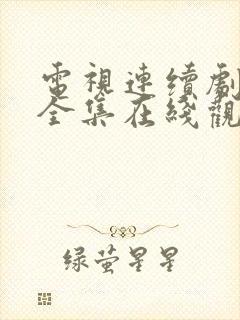 電視連續劇
全集在綫觀
綠萤星星